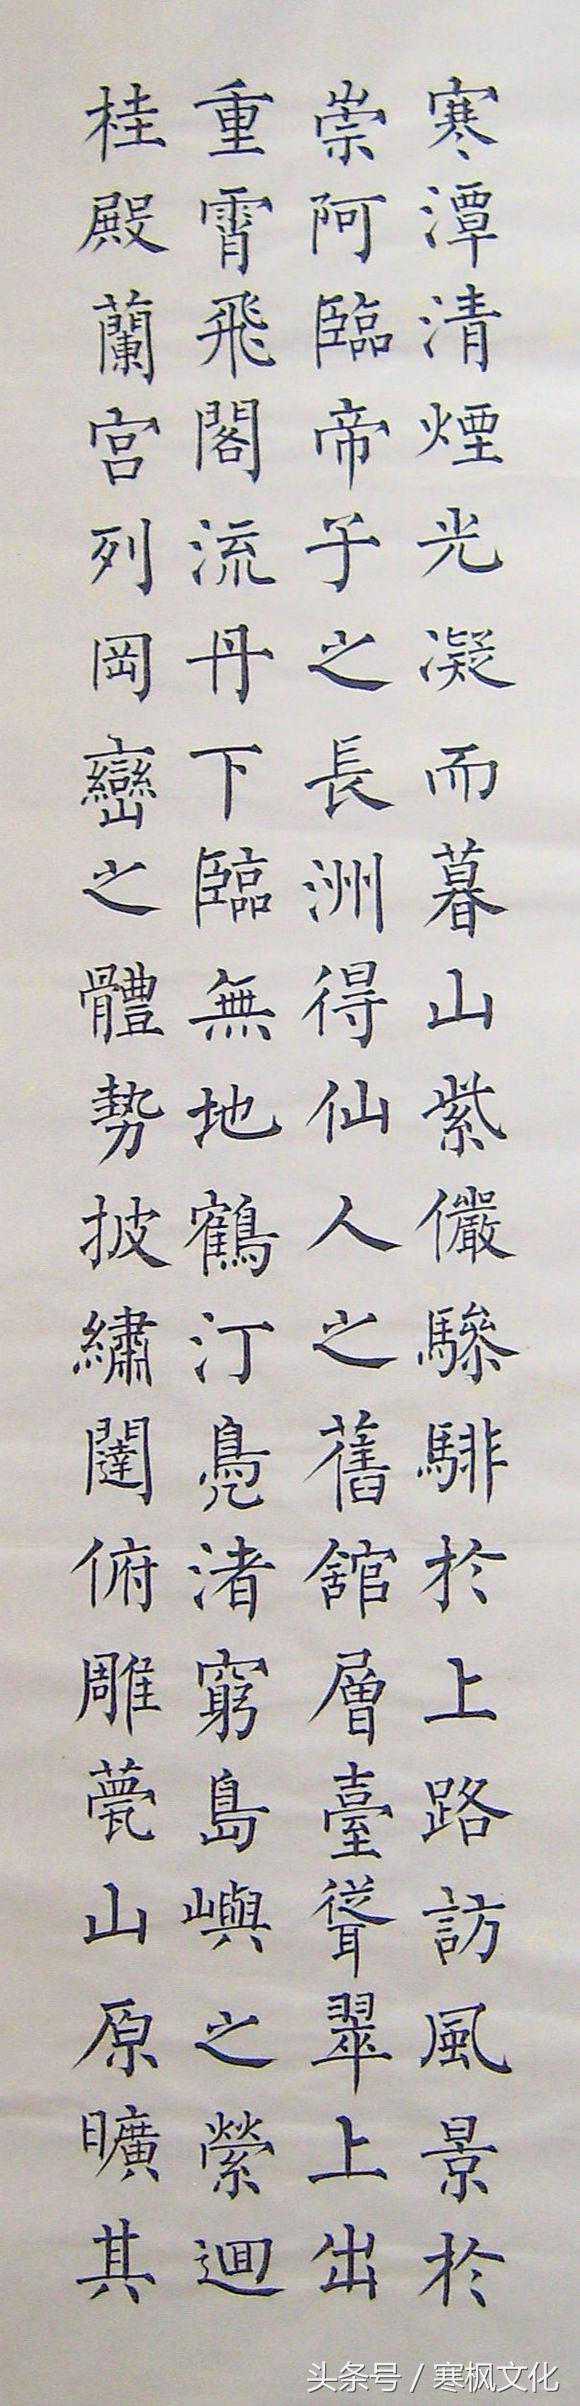 寒潭清煙光凝而暮山紫儼驂騑於上路訪風景於
崇阿臨帝子之長洲得仙人之舊館層臺聳翠上出
重霄飛閣流丹下臨無地鶴汀鳧渚窮島嶼之縈迴
桂殿蘭宮列岡巒之體勢披繡闥俯雕甍山原曠其
头条号/寒枫文化